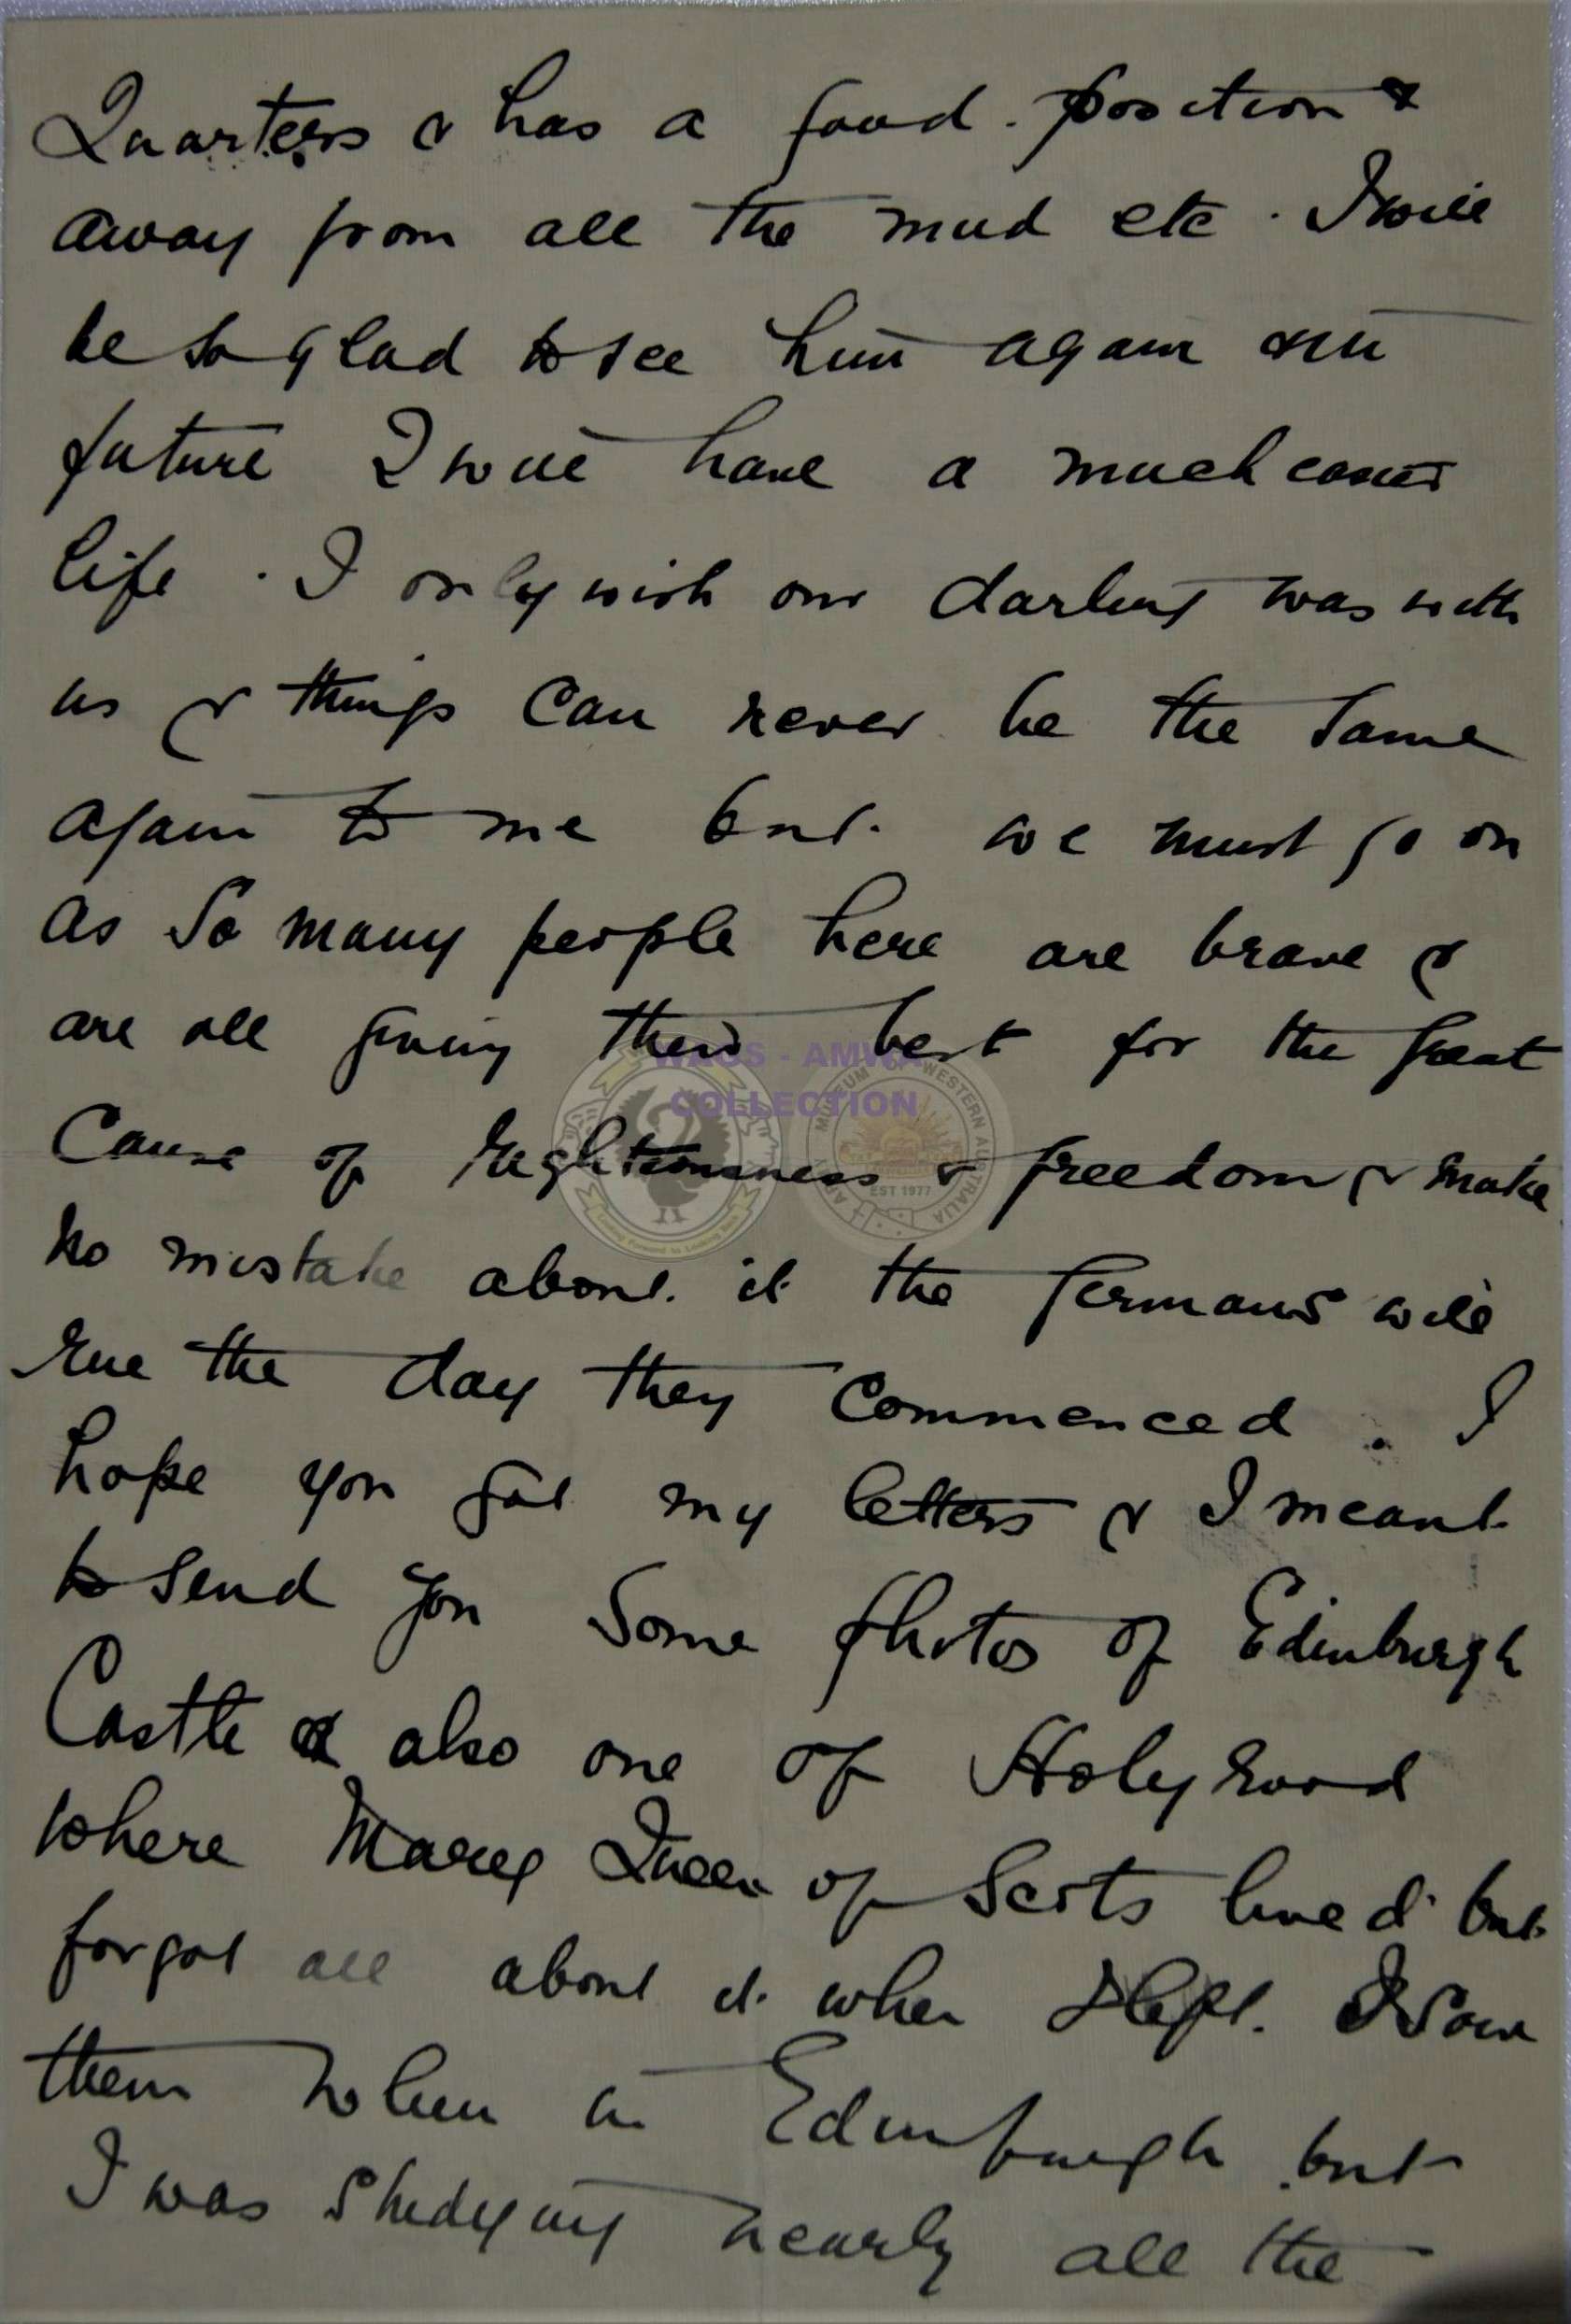 Quarters & has a good position &
away from all the mud etc. I will
be so glad to see him again & in
future I will have a much easier
life. I only wish our darling was with
us & things can never be the same
again to me but we must go on
as so many people here are brave &
are all giving their best for the great
Cause of Righteousness & freedom & make
no mistake about it the Germans will
rue the day they commenced. I
hope you got my letters & I meant
to send you some photos of Edinburgh
Castle & also one of Holyrood
where Mary Queen of Scots lived but
forgot all about it when I left. I saw
them when in Edinburgh but
I was studying nearly all the
WAGS - AMWA
COLLECTION
MUSEUM OF WESTERN AUSTRALIA
EST 1977